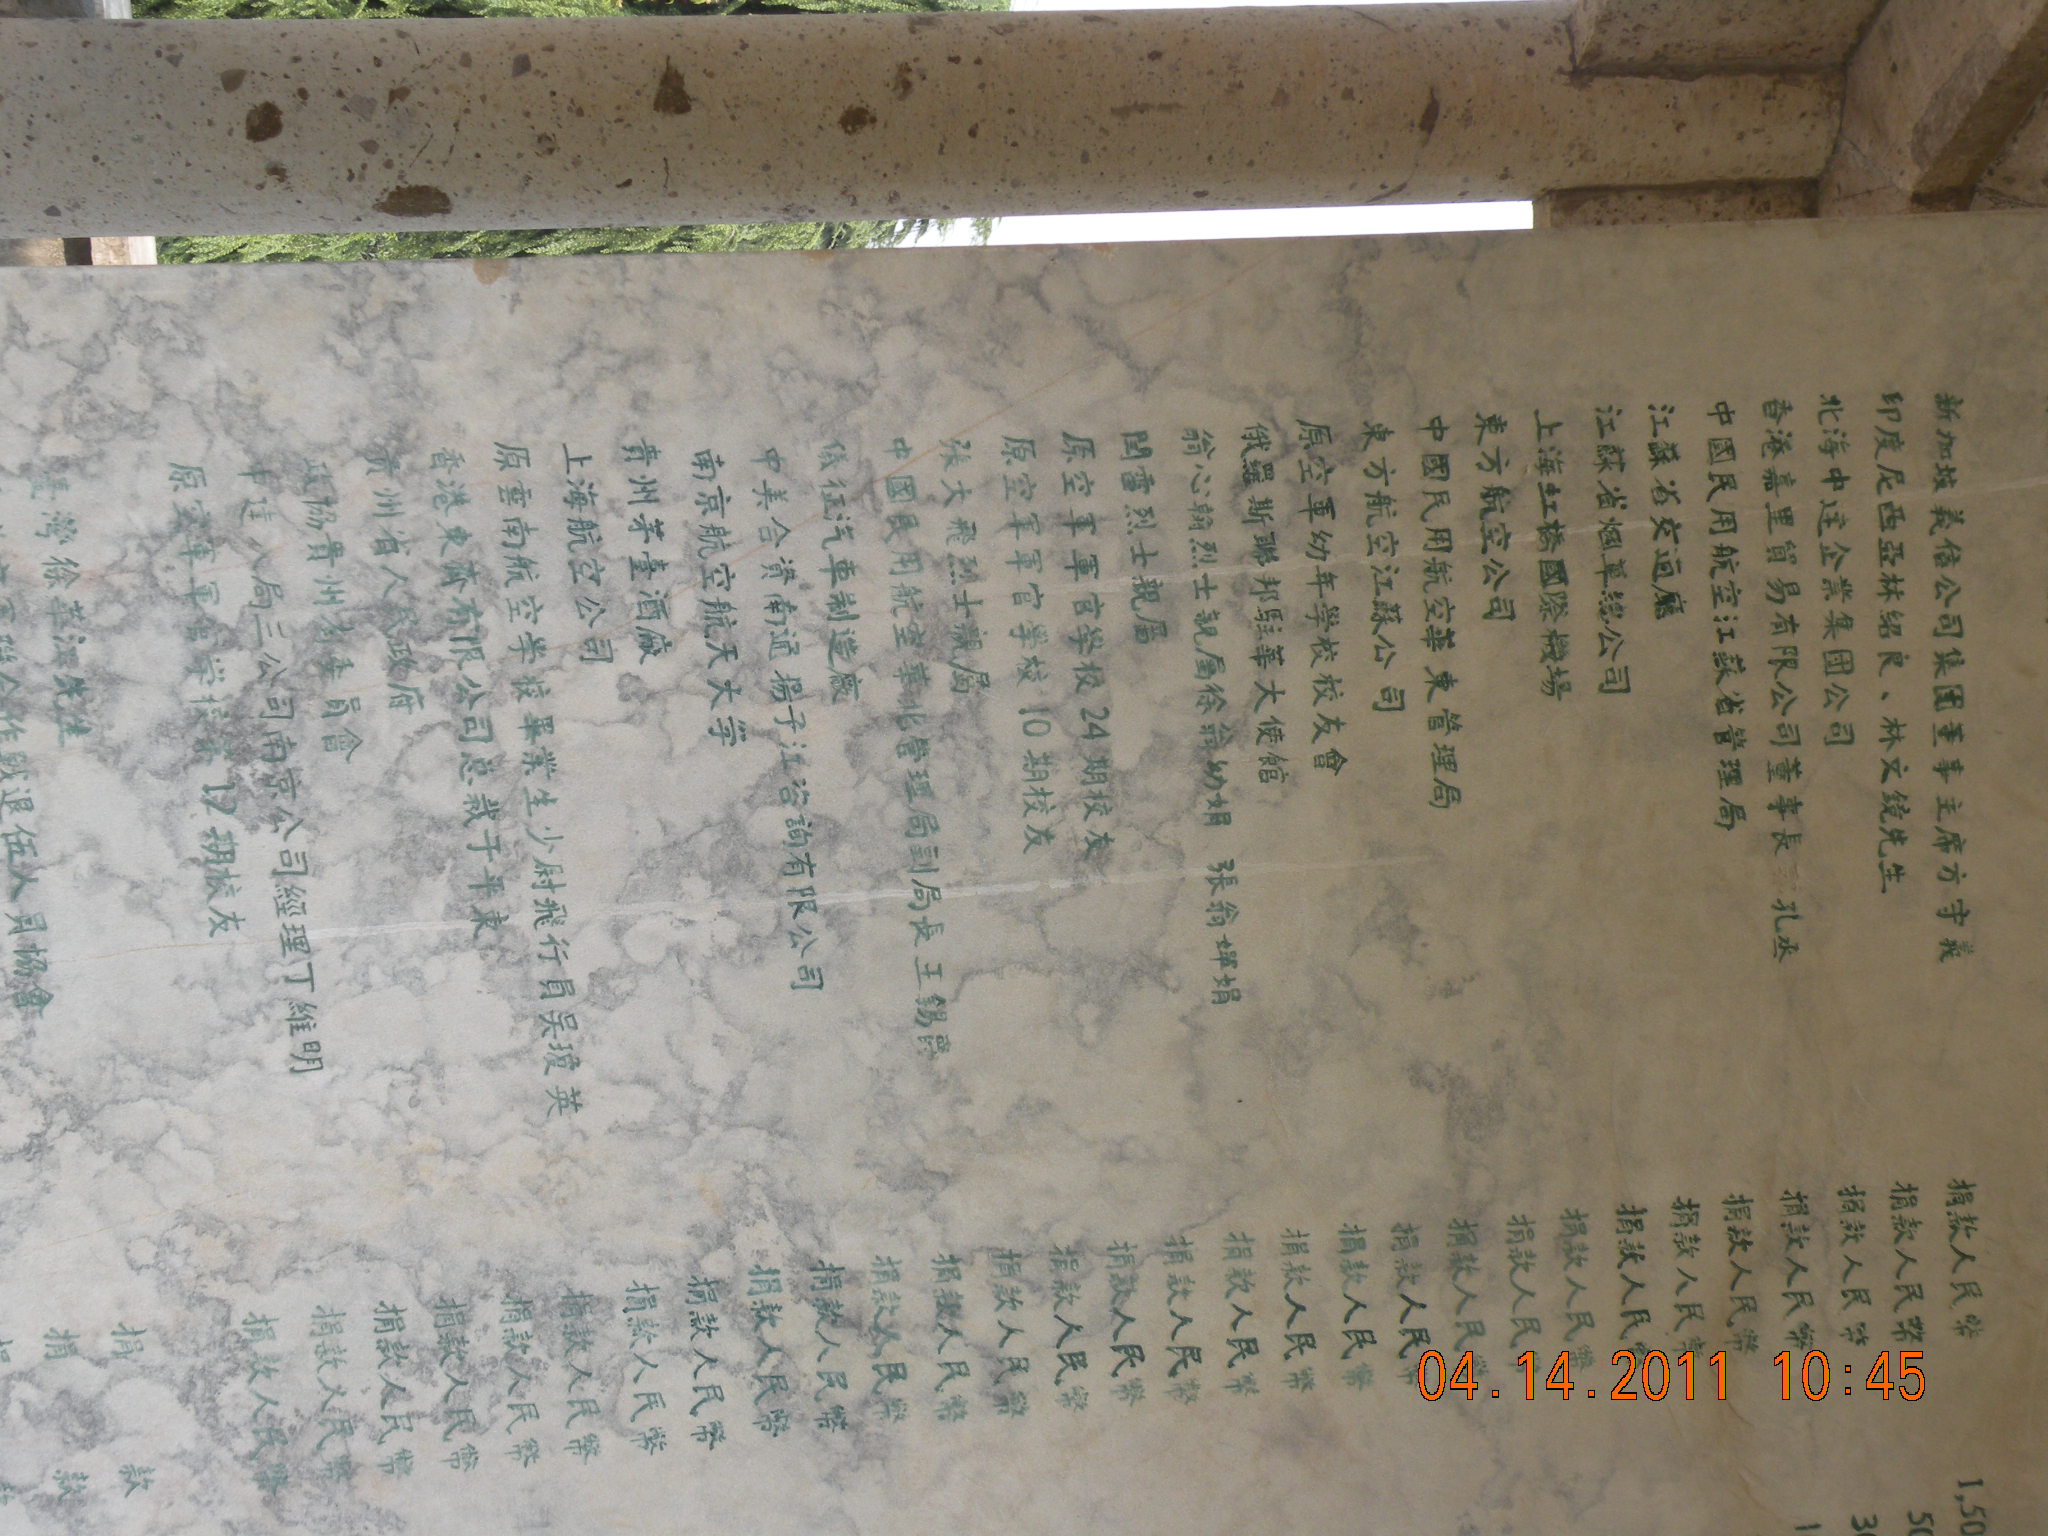 新加坡義信公司集團董事主席方守義 捐款人民幣 1,50
印度尼西亞林紹良、林文鏡先生 捐款人民幣 50
北海中達企業集团公司 捐款人民幣 30
香港嘉里貿易有限公司董事長 孔丞 捐款人民幣 1
中國民用航空江蘇省管理局 捐款人民幣
江蘇省交通廳 捐款人民幣
江蘇省烟草總公司 捐款人民幣
上海虹橋國際機場 捐款人民幣
東方航空公司 捐款人民幣
中國民用航空華東管理局 捐款人民幣
東方航空江蘇公司 捐款人民幣
原空軍幼年学校校友會 捐款人民幣
俄羅斯聯邦駐華大使館 捐款人民幣
翁心翰烈士親屬徐翁幼娟 張翁燿娟 捐款人民幣
閻雷烈士親屬 捐款人民幣
原空軍軍官学校24期校友 捐款人民幣
原空軍軍官学校10期校友 捐款人民幣
張大飛烈士親屬 捐款人民幣
中國民用航空華北管理局副局長王錫爵 捐款人民幣
儀征汽車制造廠 捐款人民幣
中美合資南通揚子江咨詢有限公司 捐款人民幣
南京航空航天大学 捐款人民幣
貴州茅臺酒廠 捐款人民幣
上海航空公司 捐款人民幣
原雲南航空学校畢業生少尉飛行員吳瓊英 捐款人民幣
香港東濤有限公司总裁于平東 捐款人民幣
贵州省人民政府 捐款人民幣
政協貴州省委員會 捐款人民幣
中建八局三公司南京公司經理丁維明 捐款人民幣
原空軍軍官学校第12期校友
臺灣徐華江先生 捐 款
作戰退伍人員協會 捐 款
04.14.2011 10:45